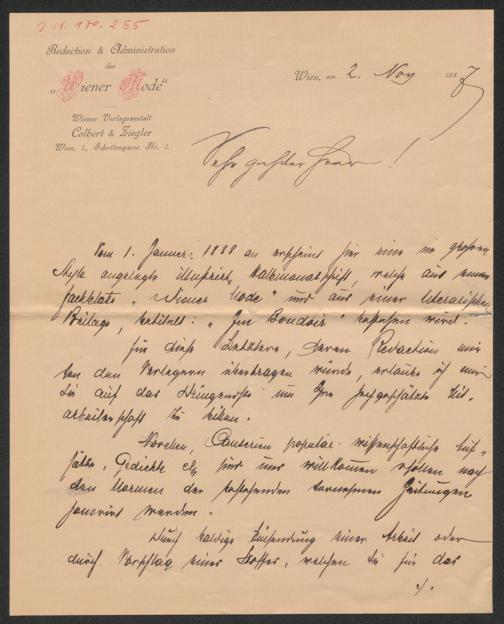 J. N. 170.255
Redaction & Administration
der
„Wiener Mode“
Wiener Verlagsanstalt
Colbert & Ziegler
Wien, I., Schottengasse Nr. 1.
Wien, am 2. Nov 1887
Sehr geehrter Herr!
Vom 1. Januar 1888 an erscheint hier eine im großen
Style angelegte illustrirte Halbmonatschrift, welche aus einem
Fachblatte „Wiener Mode“ und aus einer literarischen
Beilage, betitelt: „Im Boudoir“ bestehen wird.
Für diese Letztere, deren Redaction mir
von den Verlegern übertragen wurde, erlaube ich mir
Sie auf das Dringendste um Ihre hochgeschätzte Mit-
arbeiterschaft zu bitten.
Novellen, Causerien, populär-wissenschaftliche Auf-
sätze, Gedichte etc. sind uns willkommen & sollen nach
den Normen der bestehenden vornehmen Zeitungen
honorirt werden.
Durch baldige Einsendung einer Arbeit oder
durch Vorschlag eines Stoffes, welchen Sie für das
./.